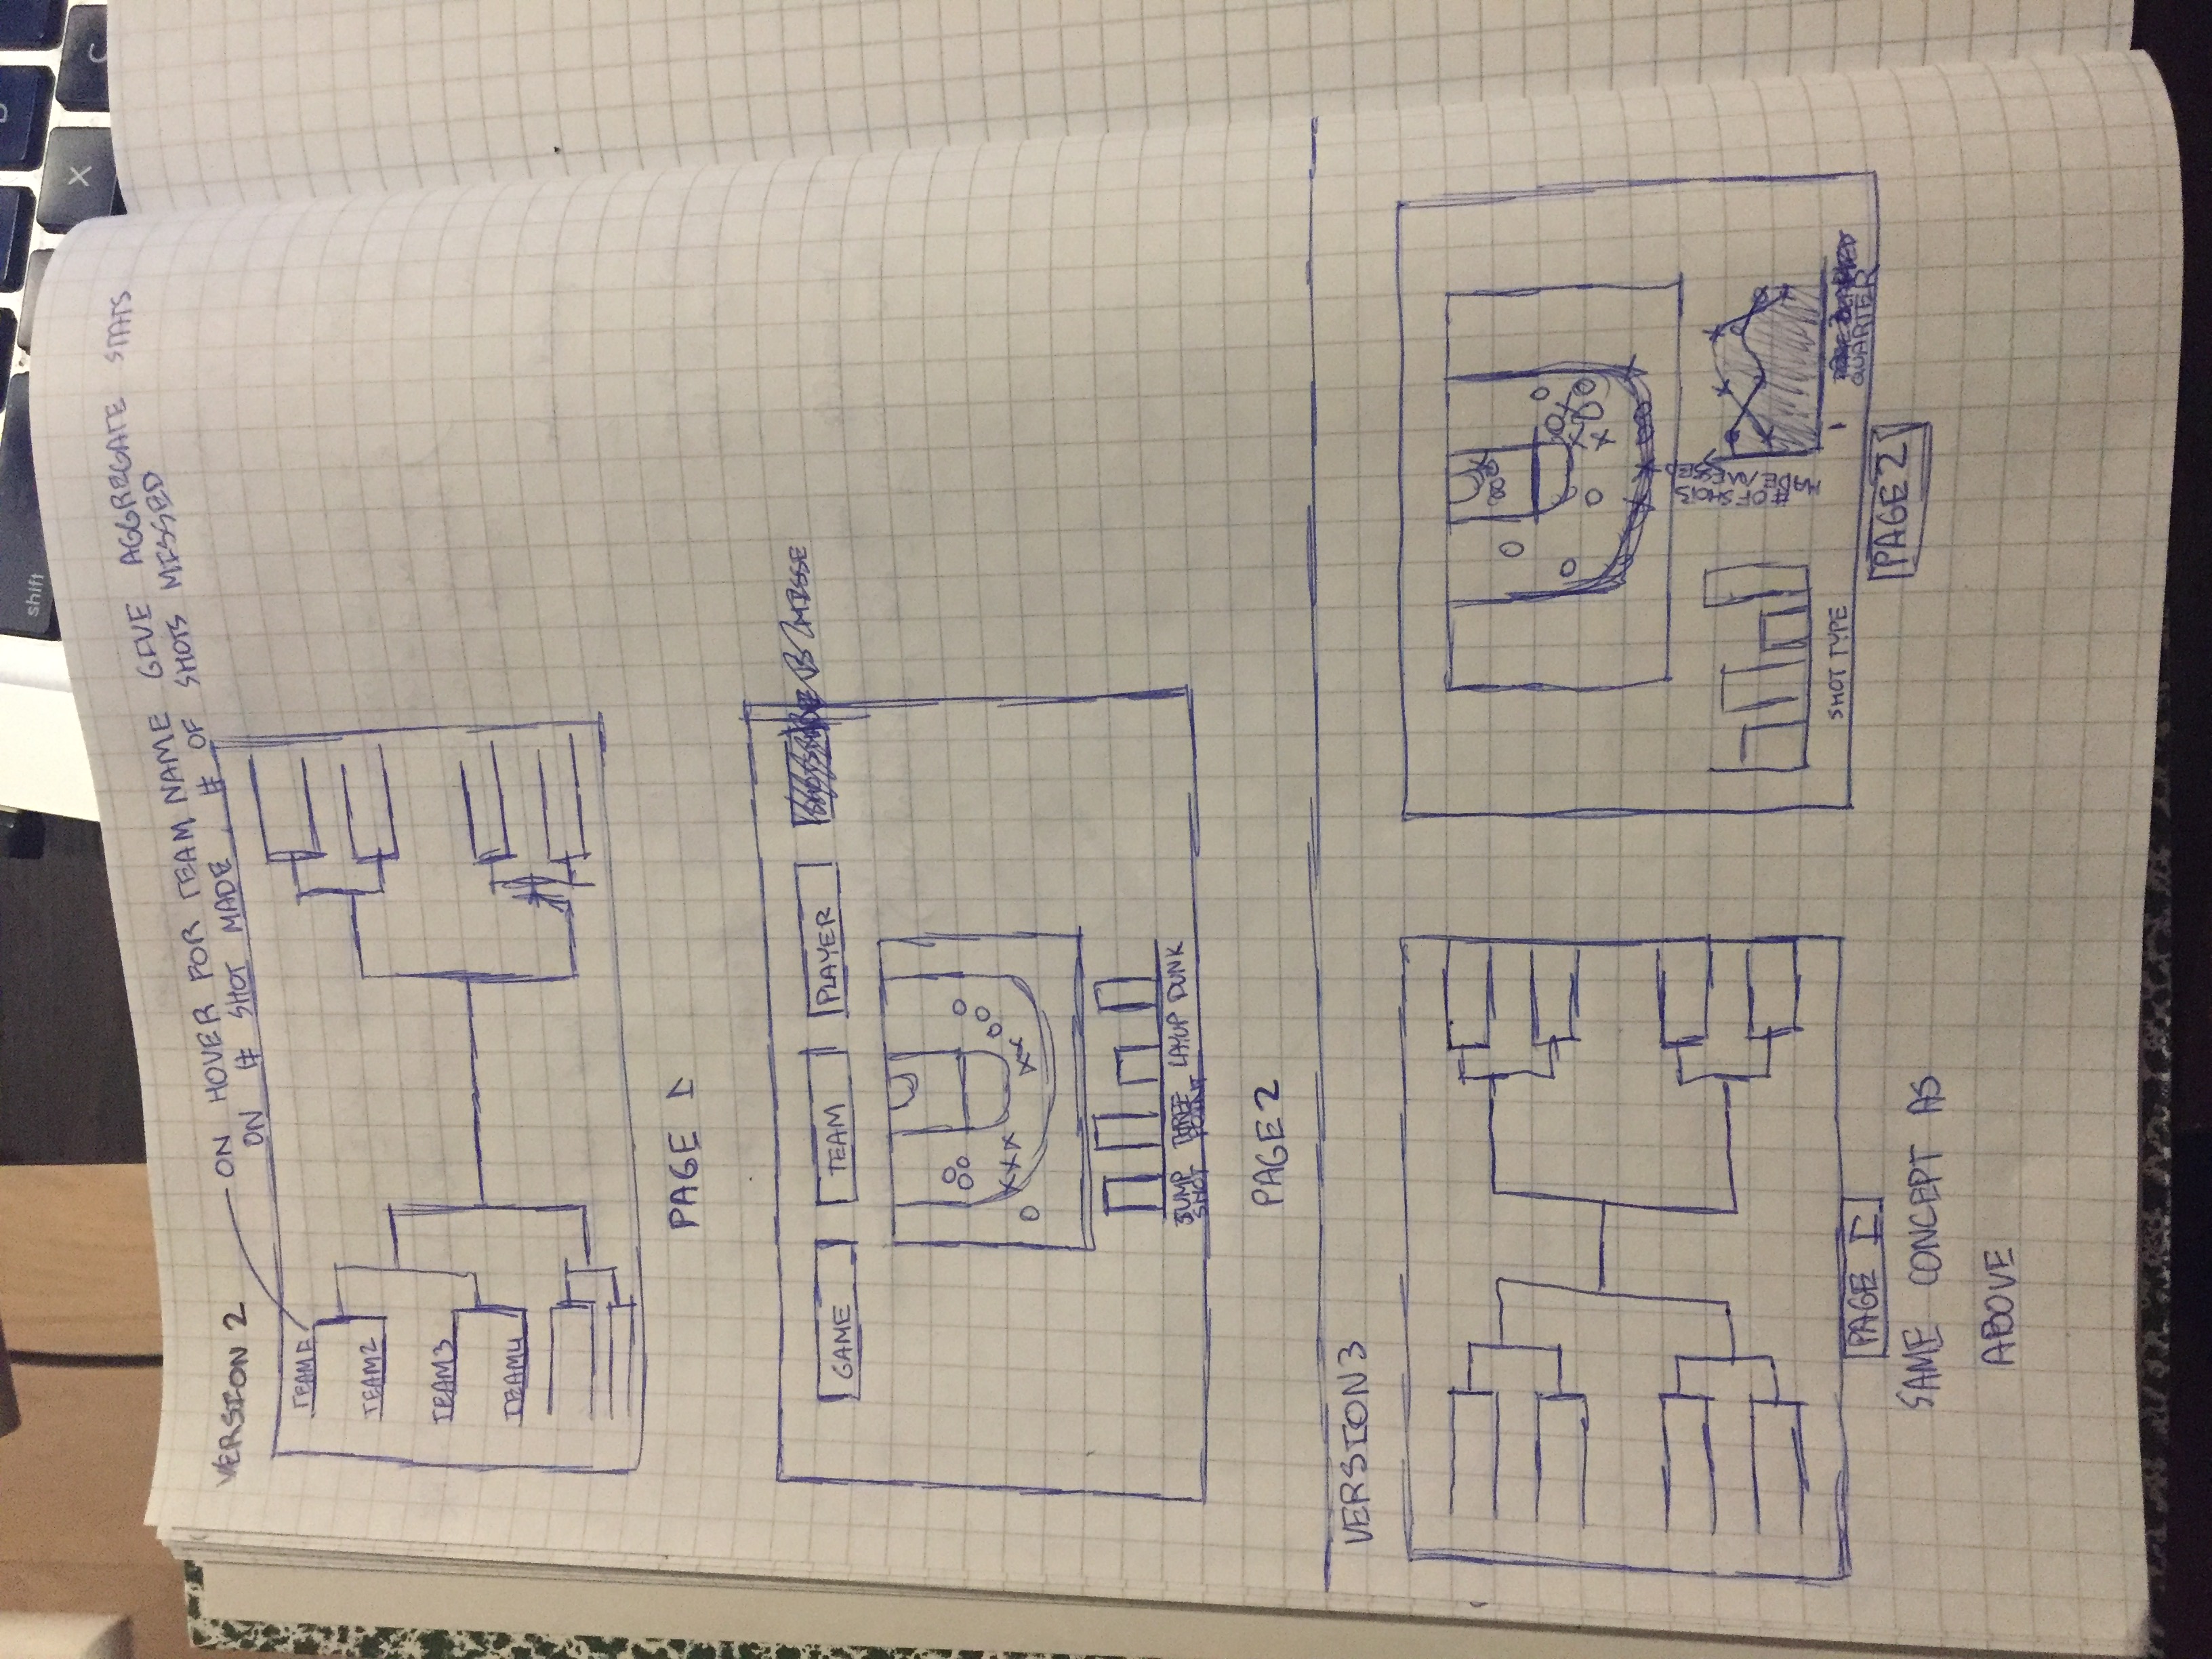 shift
X
C
VERSION 2
ON HOVER FOR TEAM NAME GIVE AGGREGATE STATS
ON # SHOT MADE, # OF SHOTS MISSED
TEAM 1
TEAM 2
TEAM 3
TEAM 4
PAGE 1
GAME
TEAM
PLAYER
MISSE
JUMP SHOT
THREE POINT
LAYUP
DUNK
PAGE 2
VERSION 3
PAGE 1
SAME CONCEPT AS
ABOVE
# OF SHOTS
MADE/MISSED
SHOT TYPE
1
QUARTER
PAGE 2